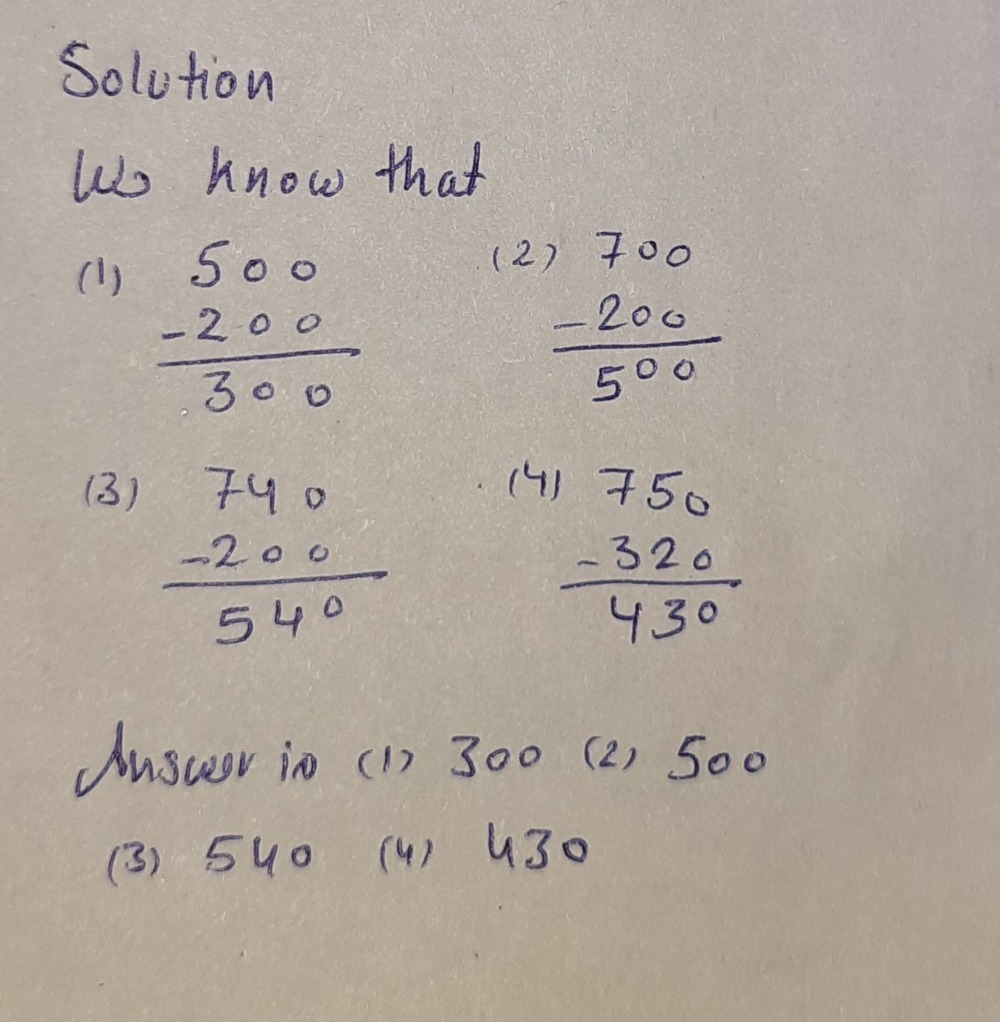 Solution
We know that
(1) 500 (2) 700
-200 -200
300 500
(3) 740 (4) 750
-200 -320
540 430
Answer is (1) 300 (2) 500
(3) 540 (4) 430